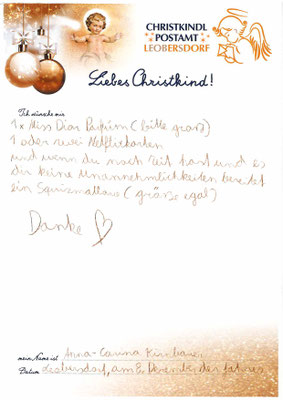 CHRISTKINDL
POSTAMT
LEOBERSDORF
Liebes Christkind!
Ich wünsche mir
1x Miss Dior Parfüm (bitte groß)
1 oder zwei Netflixkarten
und wenn du noch Zeit hast und es
dir keine Unannehmlichkeiten bereitet
ein Squizmallows (größe egal)
Danke ♡
mein Name ist Anna-Carina
Datum Leobersdorf, am 8. Dezember des Jahres